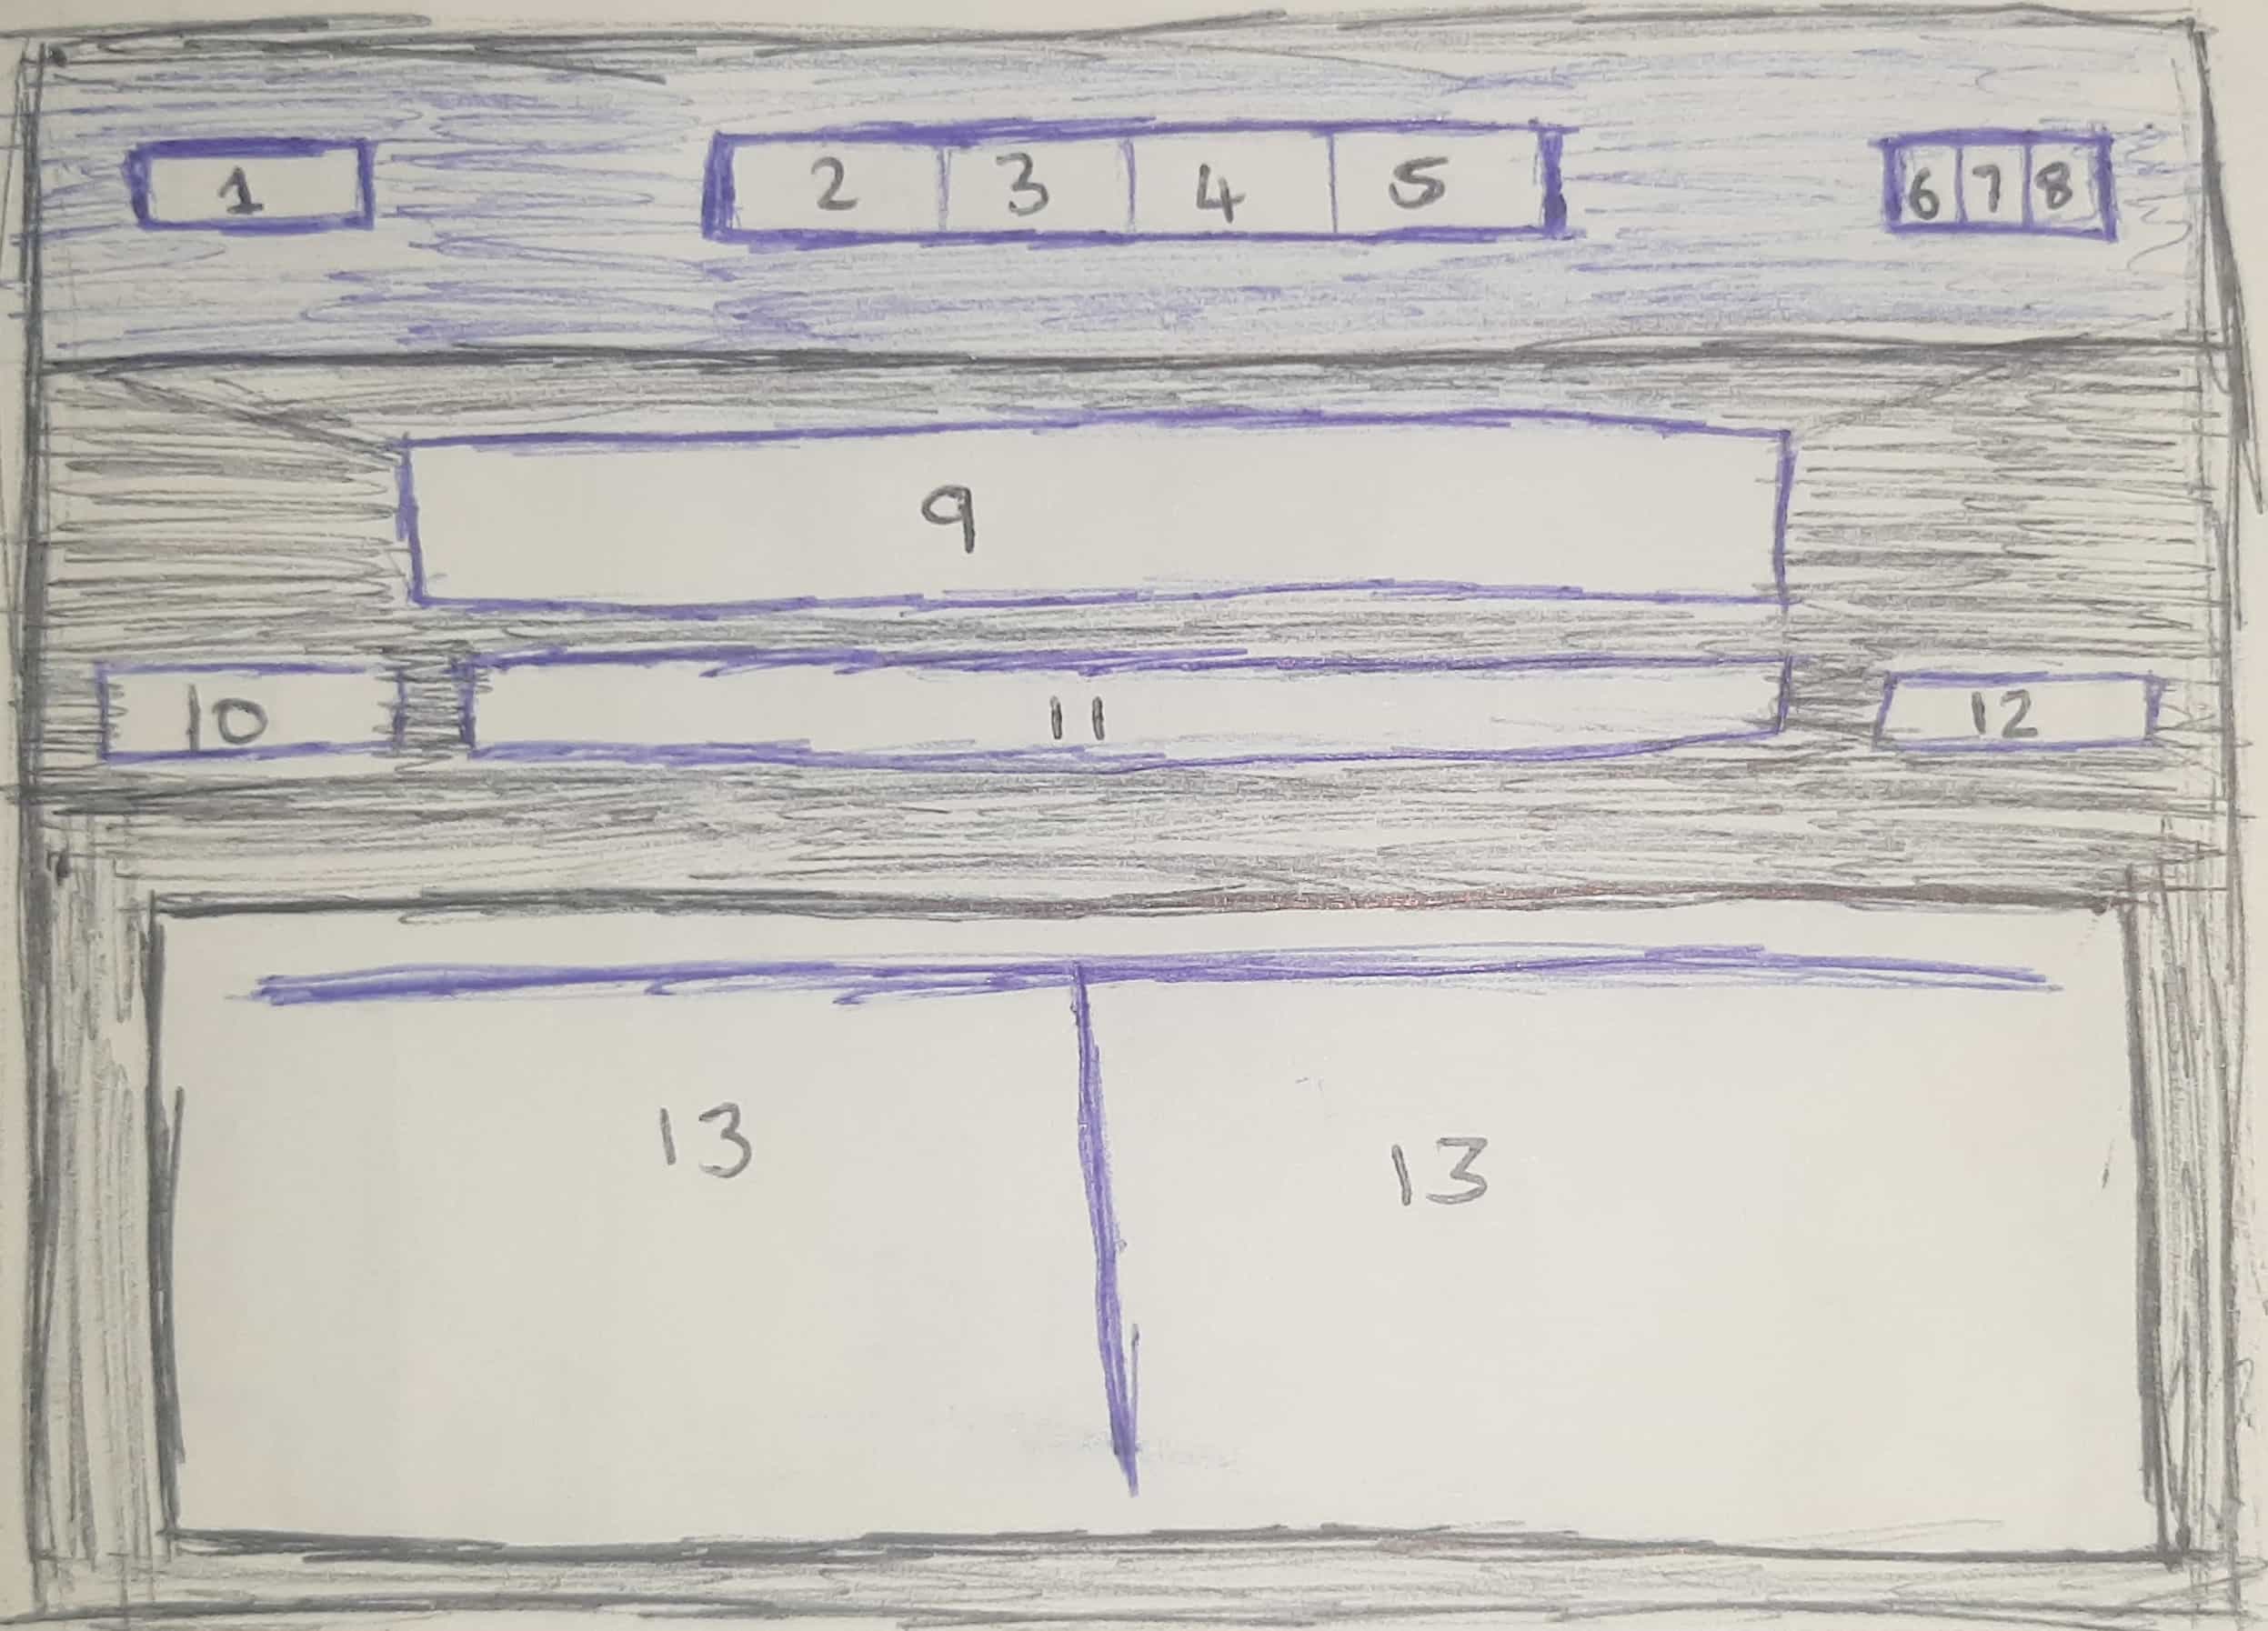 1 2 3 4 5 6 7 8
9
10 11 12
13 13